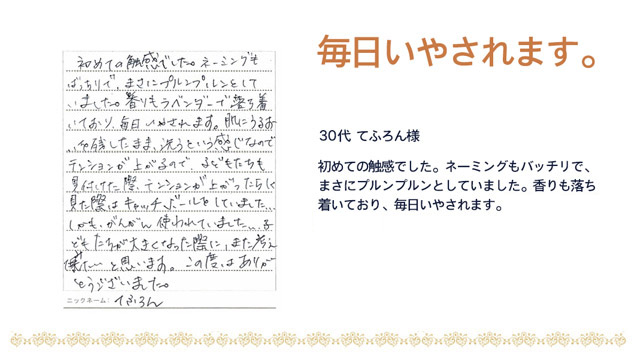 毎日いやされます。
初めての触感でした。ネーミングも
ばっちりで、まさにプルンプルンとして
いました。香りもラベンダーで落ち着
いており、毎日いやされます。肌にうるお
いが残したまま、洗うという感じなので
テンションが上がるので、子どもたちも
見付けた際、テンションが上がったらしく
見た際はキャッチボールをしていました…
しかも、がんがん使われていました…子
どもたちが大きくなった際に、また考え
たいと思います。この度はありが
とうございました。
ニックネーム: てふろん
30代 てふろん様
初めての触感でした。ネーミングもバッチリで、
まさにプルンプルンとしていました。香りも落ち
着いており、毎日いやされます。